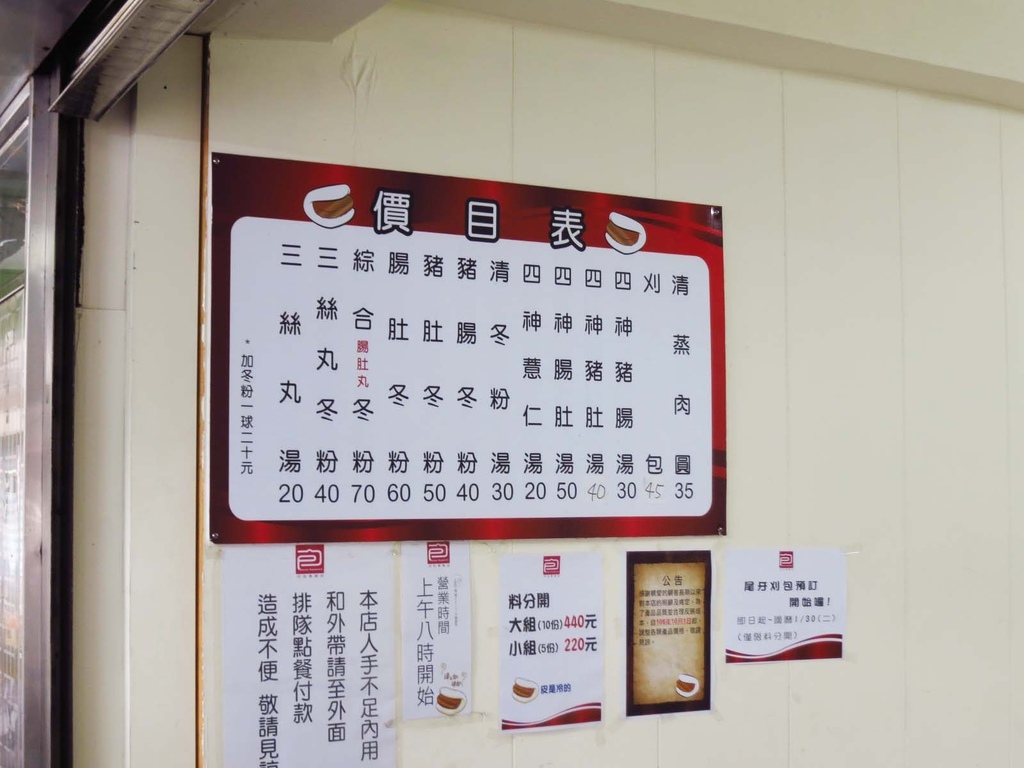 價目表
清蒸肉圓 35
刈包 45
四神豬腸湯 30
四神豬肚湯 40
四神腸肚湯 50
四神薏仁湯 20
清冬粉湯 30
豬腸冬粉 40
豬肚冬粉 50
腸肚冬粉 60
綜合腸肚丸冬粉 70
三絲丸冬粉 40
三絲丸湯 20
*加冬粉一球二十元
本店人手不足內用
和外帶請至外面
排隊點餐付款
造成不便 敬請見諒
包
營業時間
上午八時開始
包
料分開
大組(10份)440元
小組(5份) 220元
皮是冷的
公告
感謝親愛的顧客長期以來
對本店的照顧及肯定,為
包
尾牙刈包預訂
開始囉!
即日起~國曆1/30(二)
(僅限料分開)